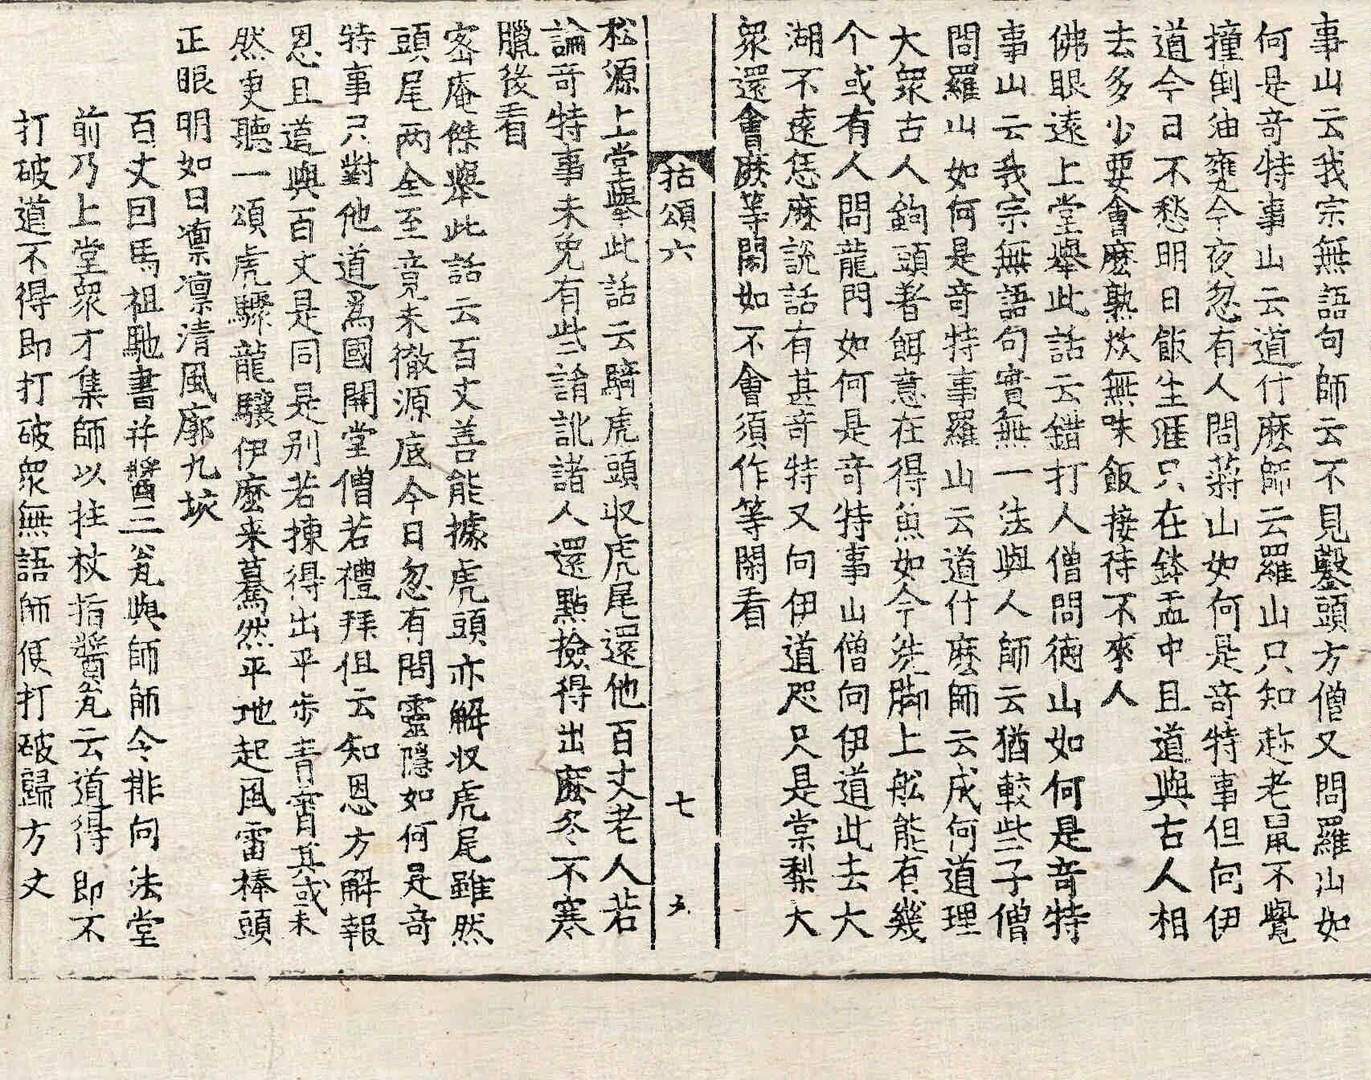 事山云我宗無語句師云不見鑿頭方僧又問羅山如
何是竒特事山云道什麽師云羅山只知趂老鼠不覺
撞倒油甕今夜忽有人問蔣山如何是竒特事但向伊
道今日不愁明日飯生涯只在鉢盂中且道與古人相
去多少要會麽熟炊無味飯接待不來人
佛眼遠上堂舉此話云錯打人僧問徳山如何是竒特
事山云我宗無語句實無一法與人師云猶較些子僧
問羅山如何是竒特事羅山云道什麽師云成何道理
大衆古人鉤頭著餌意在得魚如今洗脚上舩能有幾
个或有人問龍門如何是竒特事山僧向伊道此去大
湖不遠恁麽說話有甚竒特又向伊道咫尺是棠梨大
衆還會麽等閑如不會須作等閑看
拈頌六 七 五
松源上堂舉此話云騎虎頭収虎尾還他百丈老人若
論竒特事未免有些誵訛諸人還點撿得出麽冬不寒
臘後看
密庵傑舉此話云百丈善能據虎頭亦解収虎尾雖然
頭尾两全至竟未徹源底今日忽有問靈隱如何是竒
特事只對他道爲國開堂僧若禮拜但云知恩方解報
恩且道與百丈是同是别若揀得出平步青霄其或未
然更聽一頌虎驟龍驤伊麽来驀然平地起風雷棒頭
正眼明如日凛凛清風廓九垓
百丈囙馬祖馳書并醬三瓮與師師令排向法堂
前乃上堂衆才集師以拄杖指醬瓮云道得即不
打破道不得即打破衆無語師便打破歸方丈